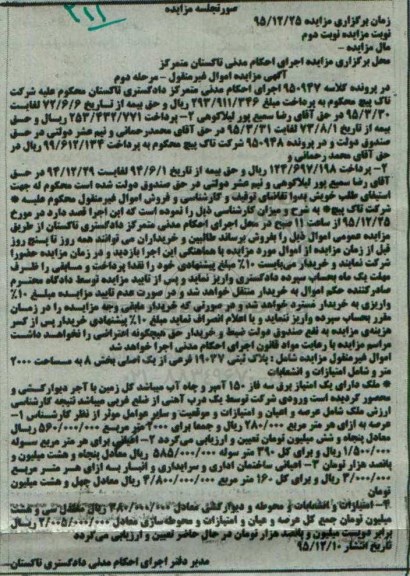 ۳۱۱
صورتجلسه مزایده
زمان برگزاری مزایده ۹۵/۱۲/۲۵
نوبت مزایده نوبت دوم
مال مزایده -
محل برگزاری مزایده اجرای احکام مدنی تاکستان متمرکز
آگهی مزایده اموال غیرمنقول - مرحله دوم
در پرونده کلاسه ۹۵۰۹۴۷ اجرای احکام مدنی متمرکز دادگستری تاکستان محکوم علیه شرکت
تاک پیچ محکوم به پرداخت مبلغ ۲۹۳/۹۱۱/۳۴۶ ریال و حق بیمه از تاریخ ۷۲/۶/۶ لغایت
۹۵/۳/۳۰ در حق آقای رضا سمیع پور لیلاکوهی ۲- پرداخت ۲۵۳/۴۳۲/۷۷۱ ریال و حق
بیمه از تاریخ ۷۳/۸/۱ لغایت ۹۵/۳/۳۱ در حق آقای محمدرحمانی و نیم عشر دولتی در حق
صندوق دولت و در پرونده ۹۵۰۹۴۸ شرکت تاک پیچ محکوم به پرداخت ۹۹/۶۱۲/۱۳۴ ریال در
حق آقای محمد رحمانی و
۲- پرداخت ۱۲۳/۶۹۷/۱۹۸ ریال و حق بیمه از تاریخ ۹۴/۶/۱ لغایت ۹۴/۱۲/۲۹ در حق
آقای رضا سمیع پور لیلاکوهی و نیم عشر دولتی در حق صندوق دولت شده است محکوم له جهت
استیفای طلب خویش بدوا تقاضای توقیف و کارشناسی و فروش اموال غیرمنقول محکوم علیه *
شرکت تاک پیچ* به شرح و میزان کارشناسی ذیل را نموده است که این اجرا قصد دارد در مورخ
۹۵/۱۲/۲۵ از ساعت ۱۱ صبح در محل اجرای احکام مدنی متمرکز دادگستری تاکستان از طریق
مزایده عمومی اموال ذیل را بفروش برساند طالبین و خریداران می توانند همه روز تا پنج روز
قبل از زمان مزایده از اموال مورد مزایده با هماهنگی این اجرا بازدید و در زمان مزایده حضورا
شرکت نمایند و خریدار می‌بایست ۱۰٪ مبلغ پیشنهادی خود را نقدا پرداخت و مابقی را ظرف
مهلت یک ماه بحساب سپرده دادگستری واریز نماید و پس از تایید مزایده توسط دادگاه محترم
صادرکننده حکم اموال به خریدار منتقل خواهد شد و در صورت عدم تایید مزایده مبلغ ۱۰٪
واریزی به خریدار مسترد خواهد شد و در صورتی که خریدار مابقی وجه مزایده را در زمان
مقرر بحساب سپرده واریز ننماید و یا اعلام انصراف نماید مبلغ ۱۰٪ پیشنهادی خریدار پس از کسر
هزینه‌ی مزایده به نفع صندوق دولت ضبط و خریدار حق هیچگونه اعتراضی را نخواهد داشت
مراسم مزایده با رعایت مواد قانون اجرای احکام مدنی اجرا خواهد شد
اموال غیرمنقول مزایده شامل: پلاک ثبتی ۱۹۰۳۷ فرعی از یک اصلی بخش ۸ به مساحت ۲۰۰۰
متر و شامل امتیازات و انشعابات
* ملک دارای یک امتیاز برق سه فاز ۱۵۰ آمپر و چاه آب میباشد کل زمین با آجر دیوارکشی و
محصور گردیده است ورودی شرکت توسط یک درب آهنی از ضلع غربی میباشد نتیجه کارشناسی
ارزش ملک شامل عرصه و اعیان و امتیازات و موقعیت و سایر عوامل موثر از نظر کارشناس ۱-
عرصه به ازای هر متر مربع ۲۸۰/۰۰۰ ریال و جمعا برای ۲۰۰۰ متر مربع ۵۶۰/۰۰۰/۰۰۰ ریال
معادل پنجاه و شش میلیون تومان تعیین و ارزیابی می‌گردد ۲- اعیانی برای هر متر مربع سوله
۱/۵۰۰/۰۰۰ ریال و برای کل ۳۹۰ متر سوله ۵۸۵/۰۰۰/۰۰۰ ریال معادل پنجاه و هشت میلیون و
پانصد هزار تومان ۳- اعیانی ساختمان اداری و سرایداری و انبار به ازای هر متر مربع
۳/۰۰۰/۰۰۰ ریال و برای کل ۱۶۰ متر مربع ۴۸۰/۰۰۰/۰۰۰ ریال معادل چهل و هشت میلیون
تومان
۴- امتیازات و انشعابات و محوطه و دیوارکشی معادل ۳۸۰/۰۰۰/۰۰۰ ریال معادل سی و هشت
میلیون تومان جمع کل عرصه و عیان و امتیازات و محوطه‌سازی معادل ۲/۰۰۵/۰۰۰/۰۰۰ ریال
برابر دویست میلیون و پانصد هزار تومان در حال حاضر تعیین و ارزیابی می‌گردد
تاریخ انتشار ۹۵/۱۲/۱۰
مدیر دفتر اجرای احکام مدنی دادگستری تاکستان-